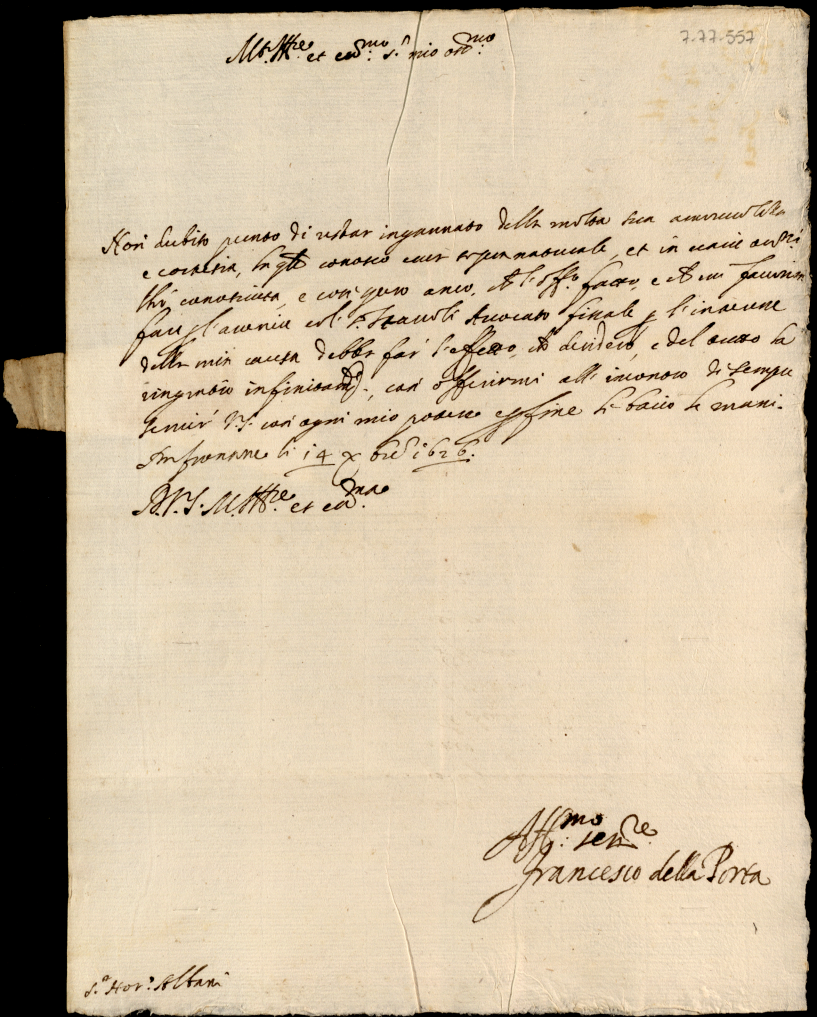 7-77-557
M.to Ill.re et ecc.mo s.r mio oss.mo
Non dubito punto di restar ingannato della molta sua amorevolezza
e cortesia, la q.le conosco esser sopranaturale, et in varie occ.ni
l'hò conosciuta, e con q.sto anco, ch l'off.o fatto, e ch
far gl'avenire col s.r Avocato finale p l'
della mia causa debba far l'effetto, ch desidero, e del tutto la
ringratio infinitam.te, con offerirmi all' incontro di sempre
servir V.S. con ogni mio potere e p fine le bacio le mani.
li 14 Xbre 1626.
D.V.S. M. Ill.re et ecc.ma
Aff.mo ser.re
francesco della Porta
s.r Hor.o Albani